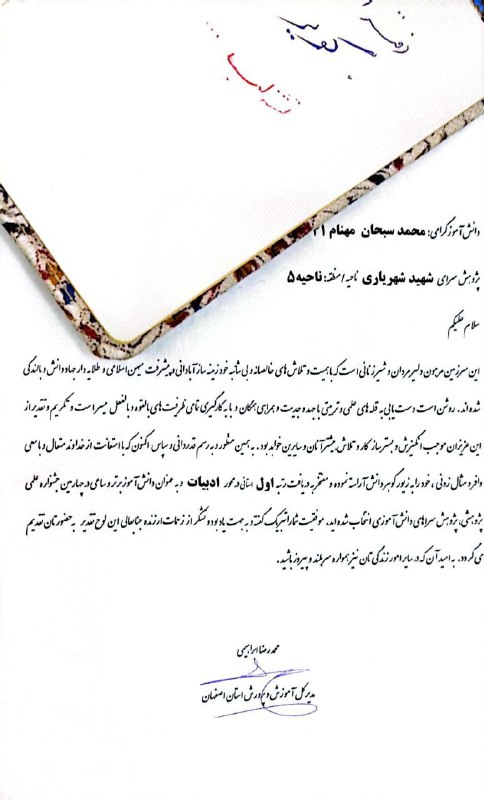 دانش آموز گرامی: محمد سبحان مهنام
پژوهش سرای شهید شهریاری ناحیه / منطقه: ناحیه ۵
سلام علیکم
این سرزمین مرهون دلیرمردان و شیرزنانی است که با همت و تلاش های خالصانه و بی شائبه خود زمینه ساز آبادانی و پیشرفت میهن اسلامی و طلایه دار جهاد دانش و بالندگی
شده اند. روشن است دست یابی به قله های علمی و تربیتی با جهد و جدیت و همراهی همگان و با به کارگیری تمامی ظرفیت های بالقوه و بالفعل میسر است و تکریم و تقدیر از
این عزیزان موجب انگیزش و بسترساز کار و تلاش بیشتر آنان و سایرین خواهد بود. به همین منظور و به رسم قدردانی و سپاس اکنون که با استعانت از خداوند متعال و با سعی
وافر و مثال زدنی، خود را به زیور گوهر دانش آراسته نموده و مفتخر به دریافت رتبه اول استانی در محور ادبیات و به عنوان دانش آموز برتر و ساعی در چهارمین جشنواره علمی
پژوهشی، پژوهش سراهای دانش آموزی انتخاب شده اید. موفقیت شما را تبریک گفته و به جهت یادبود و تشکر از زحمات ارزنده جنابعالی این لوح تقدیر به حضورتان تقدیم
می گردد. به امید آن که در سایر امور زندگی تان نیز همواره سربلند و پیروز باشید.
محمدرضا ابراهیمی
مدیر کل آموزش و پرورش استان اصفهان